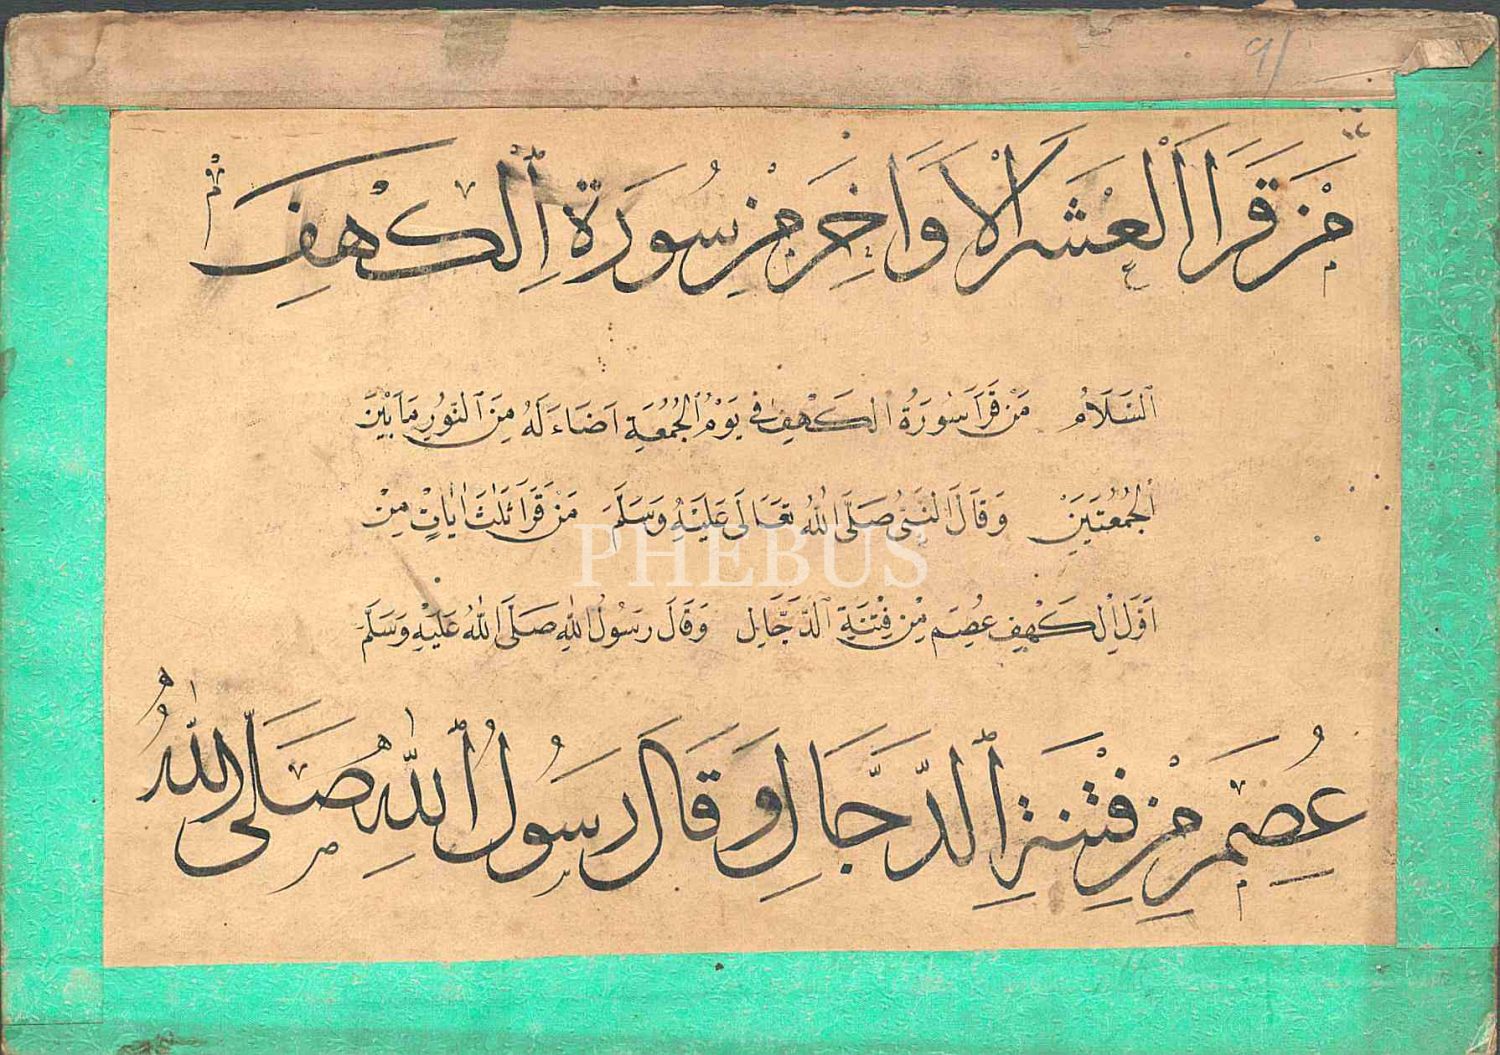 مَنْ قَرَأَ الْعَشْرَ الْأَوَاخِرَ مِنْ سُورَةِ الْكَهْفِ
السَّلَامُ مَنْ قَرَأَ سُورَةُ الْكَهْفِ فِي يَوْمِ الْجُمُعَةِ اَضَاءَ لَهُ مِنَ النُّورِ مَا بَيْنَ
الْجُمُعَتَيْنِ وَقَالَ النَّبِيُّ صَلَّى اللهُ تَعَالَى عَلَيْهِ وَسَلَّمَ مَنْ قَرَأَ ثَلَثَ اٰيَاتٍ مِنْ
اَوَّلِ الْكَهْفِ عُصِمَ مِنْ فِتْنَةِ الدَّجَّالِ وَقَالَ رَسُولُ اللهِ صَلَّى اللهُ عَلَيْهِ وَسَلَّمَ
PHEBUS
عُصِمَ مِنْ فِتْنَةِ الدَّجَّالِ وَقَالَ رَسُولُ اللهِ صَلَّى اللهُ